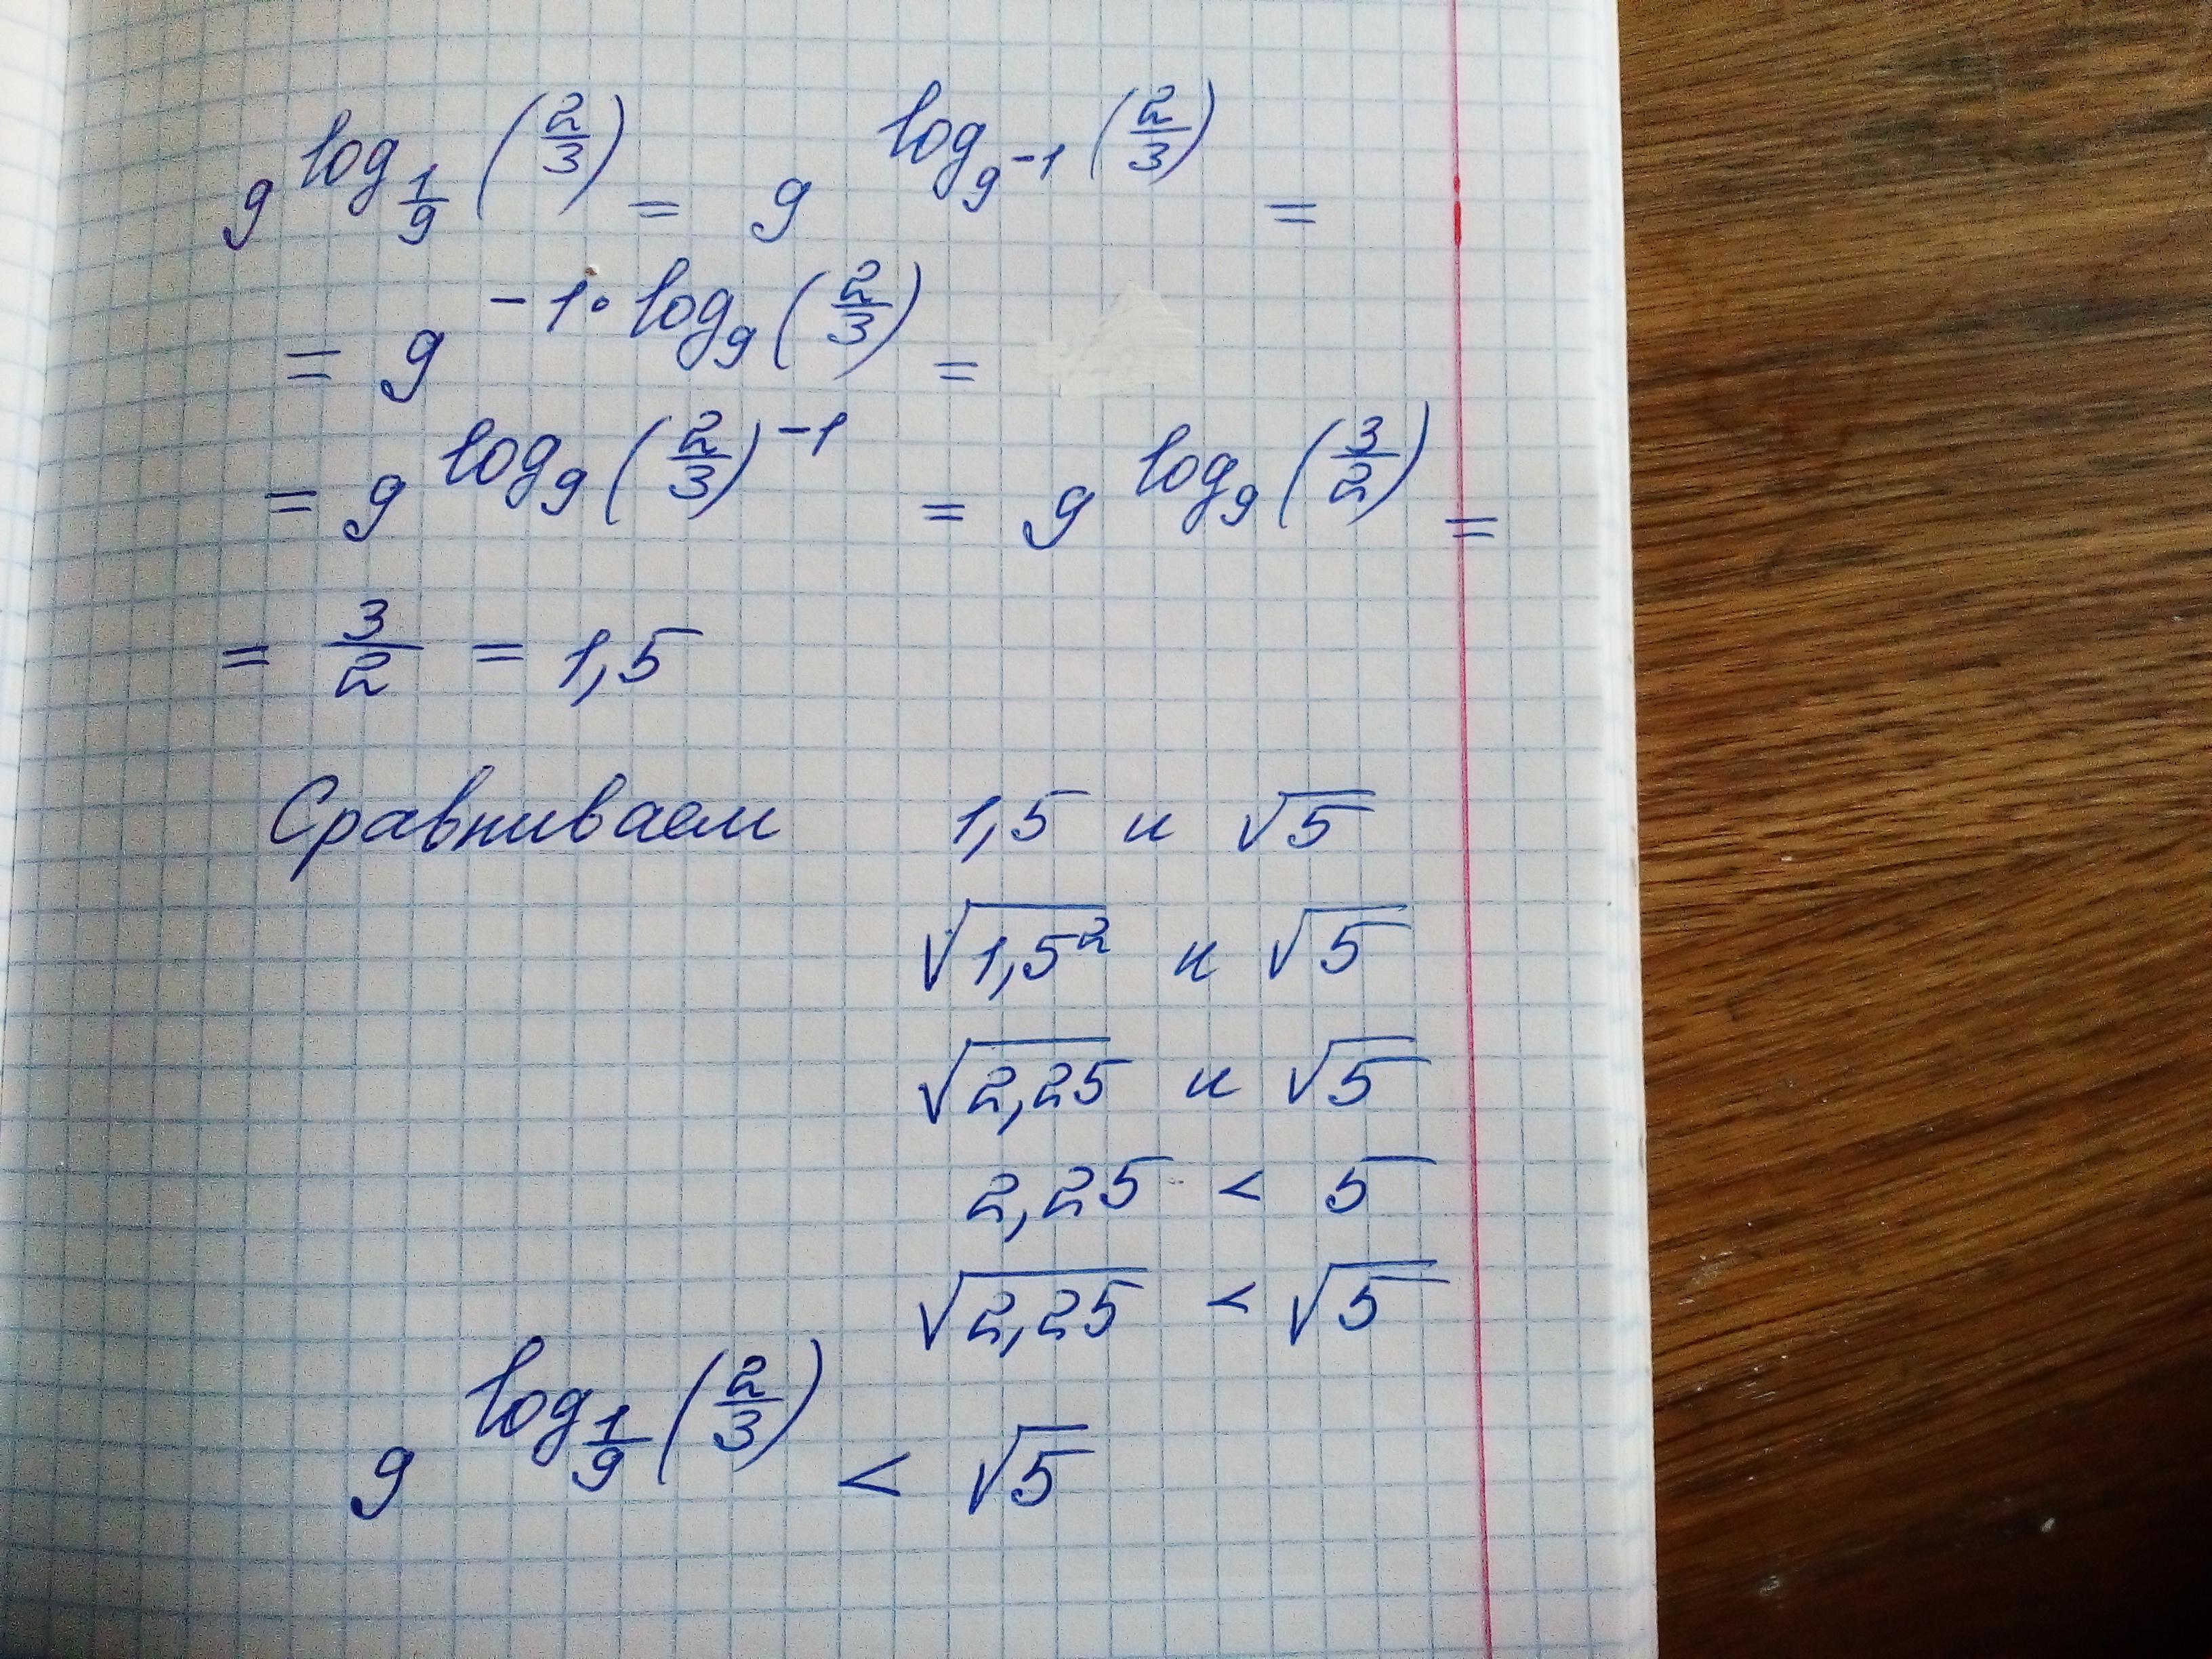 9^{log_{1/9}(2/3)} = 9^{log_{9^{-1}}(2/3)} =
= 9^{-1·log_9(2/3)} =
= 9^{log_9(2/3)^{-1}} = 9^{log_9(3/2)} =
= 3/2 = 1,5
Сравниваем 1,5 и √5
√1,5² и √5
√2,25 и √5
2,25 < 5
√2,25 < √5
9^{log_{1/9}(2/3)} < √5